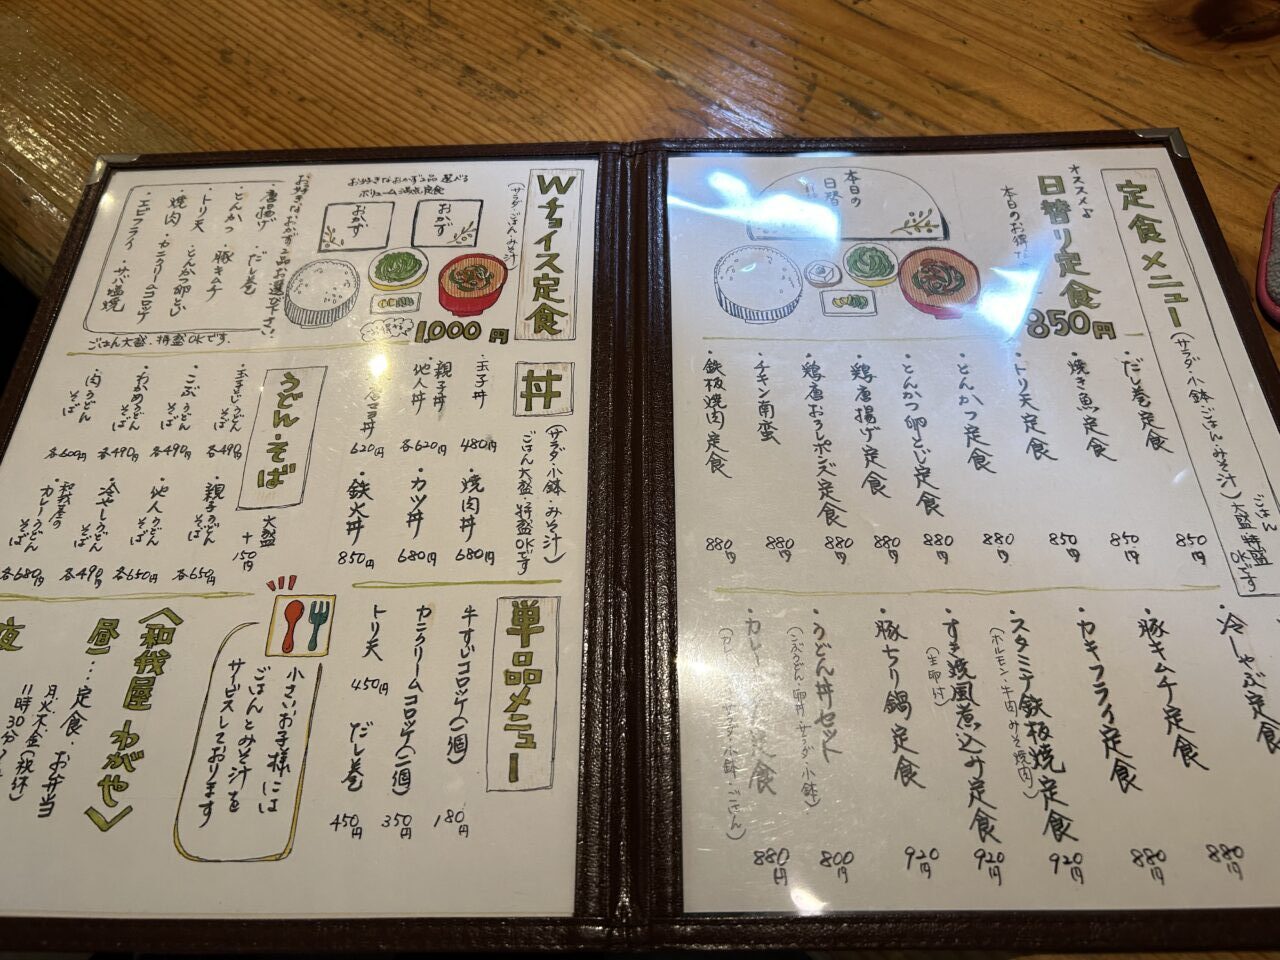 定食メニュー
(サラダ・小鉢・ごはん・みそ汁)
ごはん
大盛特盛
OKです
オススメ♪
日替り定食
850円
本日のお得な
本日の
日替
・だし巻定食 850円
・焼き魚定食 850円
・トリ天定食 850円
・とんかつ定食 880円
・とんかつ卵とじ定食 880円
・鶏唐揚げ定食 880円
・鶏唐おろしポンズ定食 880円
・チキン南蛮 880円
・鉄板焼肉定食 880円
・冷しゃぶ定食 880円
・豚キムチ定食 880円
・カキフライ定食 920円
・スタミナ鉄板焼定食 920円
(ホルモン・牛肉みそ焼肉)
・すき焼風煮込み定食 920円
(生卵付)
・豚ちり鍋定食
・うどん丼セット 800円
(こぶうどん・卵丼・サラダ・小鉢)
・カレー 定食 880円
サラダ・小鉢・ごはん)
Wチョイス定食
(サラダ・ごはん・みそ汁)
お好きなおかず2品選べる
ボリューム満点定食
おかず
おかず
1,000円
お好きなおかず2品お選び下さい
・唐揚げ ・だし巻
・とんかつ ・豚キムチ
・トリ天 ・とんかつ卵とじ
・焼肉 ・カニクリームコロッケ
・エビフライ ・サバ塩焼
ごはん大盛・特盛OKです。
丼
(サラダ・小鉢・みそ汁)
ごはん大盛・特盛OKです
・玉子丼 480円
・親子丼
・他人丼 各620円
丼 620円
・焼肉丼 680円
・カツ丼 680円
・鉄火丼 850円
うどん・そば
大盛
+
150円
・玉子とじうどんそば 各490円
・こぶうどんそば 各490円
・おかめうどんそば 各490円
・肉うどんそば 各600円
・親子うどんそば 各650円
・他人うどんそば 各650円
・冷やしうどんそば 各490円
・和伐屋のカレーうどんそば 各680円
単品メニュー
牛すじコロッケ(一個) 180円
カニクリームコロッケ(二個) 350円
トリ天 450円
だし巻 450円
小さいお子様には
ごはんとみそ汁を
サービスしております
〈和伐屋 わがや〉
昼…定食・お弁当
月火木金(祝休)
11時30分
夜